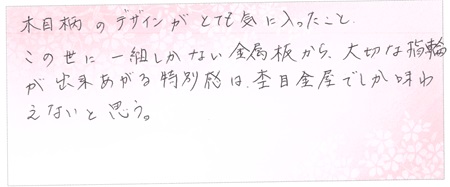 木目柄のデザインがとても気に入ったこと。
この世に一組しかない金属板から、大切な指輪
が出来あがる特別感は、杢目金屋でしか味わ
えないと思う。